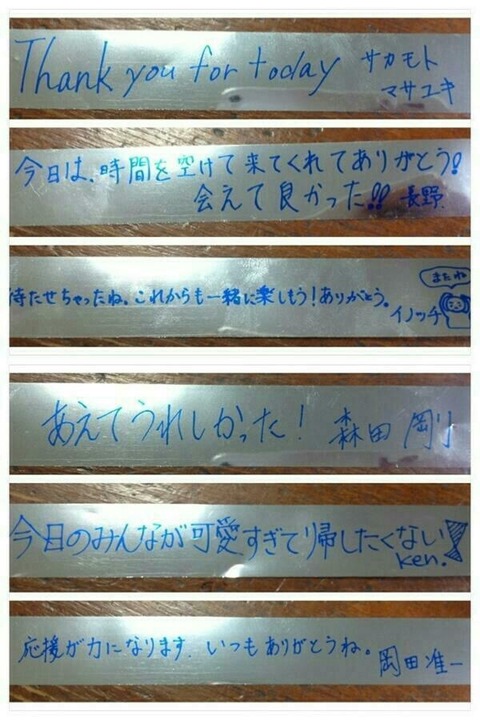 Thank you for today サカモト
マサユキ
今日は、時間を空けて来てくれてありがとう!
会えて良かった!! 長野.
待たせちゃったね。これからも一緒に楽しもう!ありがとう。
またね
イノッチ
あえてうれしかった! 森田 剛
今日のみんなが可愛すぎて帰したくない!
Ken.
応援が力になります. いつもありがとうね。
岡田准一